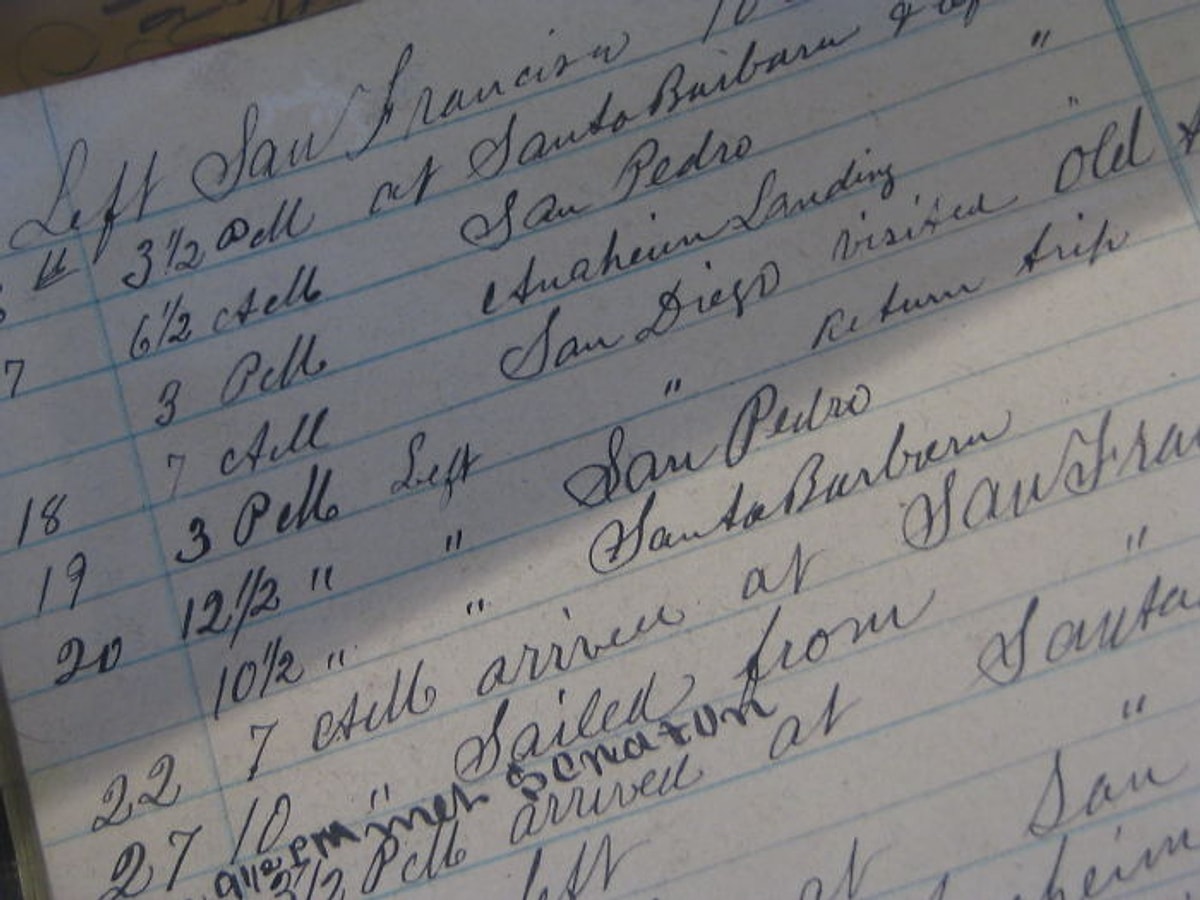 Left San Francisco 10
3 1/2 PM at Santa Barbara &
6 1/2 AM San Pedro "
7 3 PM Anaheim Landing "
7 AM San Diego visited Old
18 3 PM Left " Return trip
19 12 1/2 " " San Pedro
20 10 1/2 " " Santa Barbara
22 7 AM arrived at San Fra
27 10 " Sailed from "
9 1/2 PM met Senator
3 1/2 PM arrived at Santa
left "
at San
heim